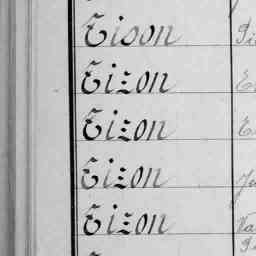 Tison
Tizon
Tizon
Tizon
Tizon